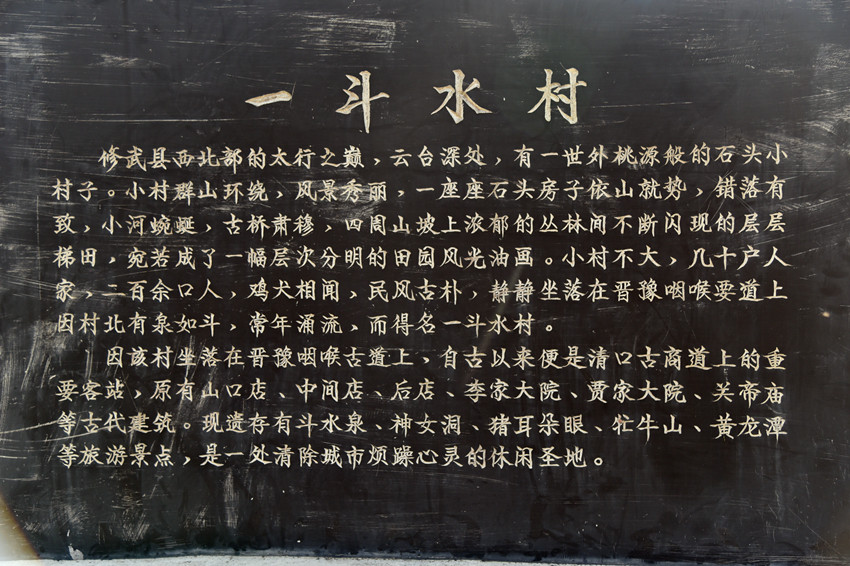 一斗水村
修武县西北部的太行之巅，云台深处，有一世外桃源般的石头小
村子。小村群山环绕，风景秀丽，一座座石头房子依山就势，错落有
致，小河蜿蜒，古桥肃穆，四周山坡上浓郁的丛林间不断闪现的层层
梯田，宛若成了一幅层次分明的田园风光油画。小村不大，几十户人
家，二百余口人，鸡犬相闻，民风古朴，静静坐落在晋豫咽喉要道上
因村北有泉如斗，常年涌流，而得名一斗水村。
因该村坐落在晋豫咽喉古道上，自古以来便是清口古商道上的重
要客站，原有山口店、中间店、后店、李家大院、贾家大院、关帝庙
等古代建筑。现遗存有斗水泉、神女洞、猪耳朵眼、牤牛山、黄龙潭
等旅游景点，是一处清除城市烦躁心灵的休闲圣地。